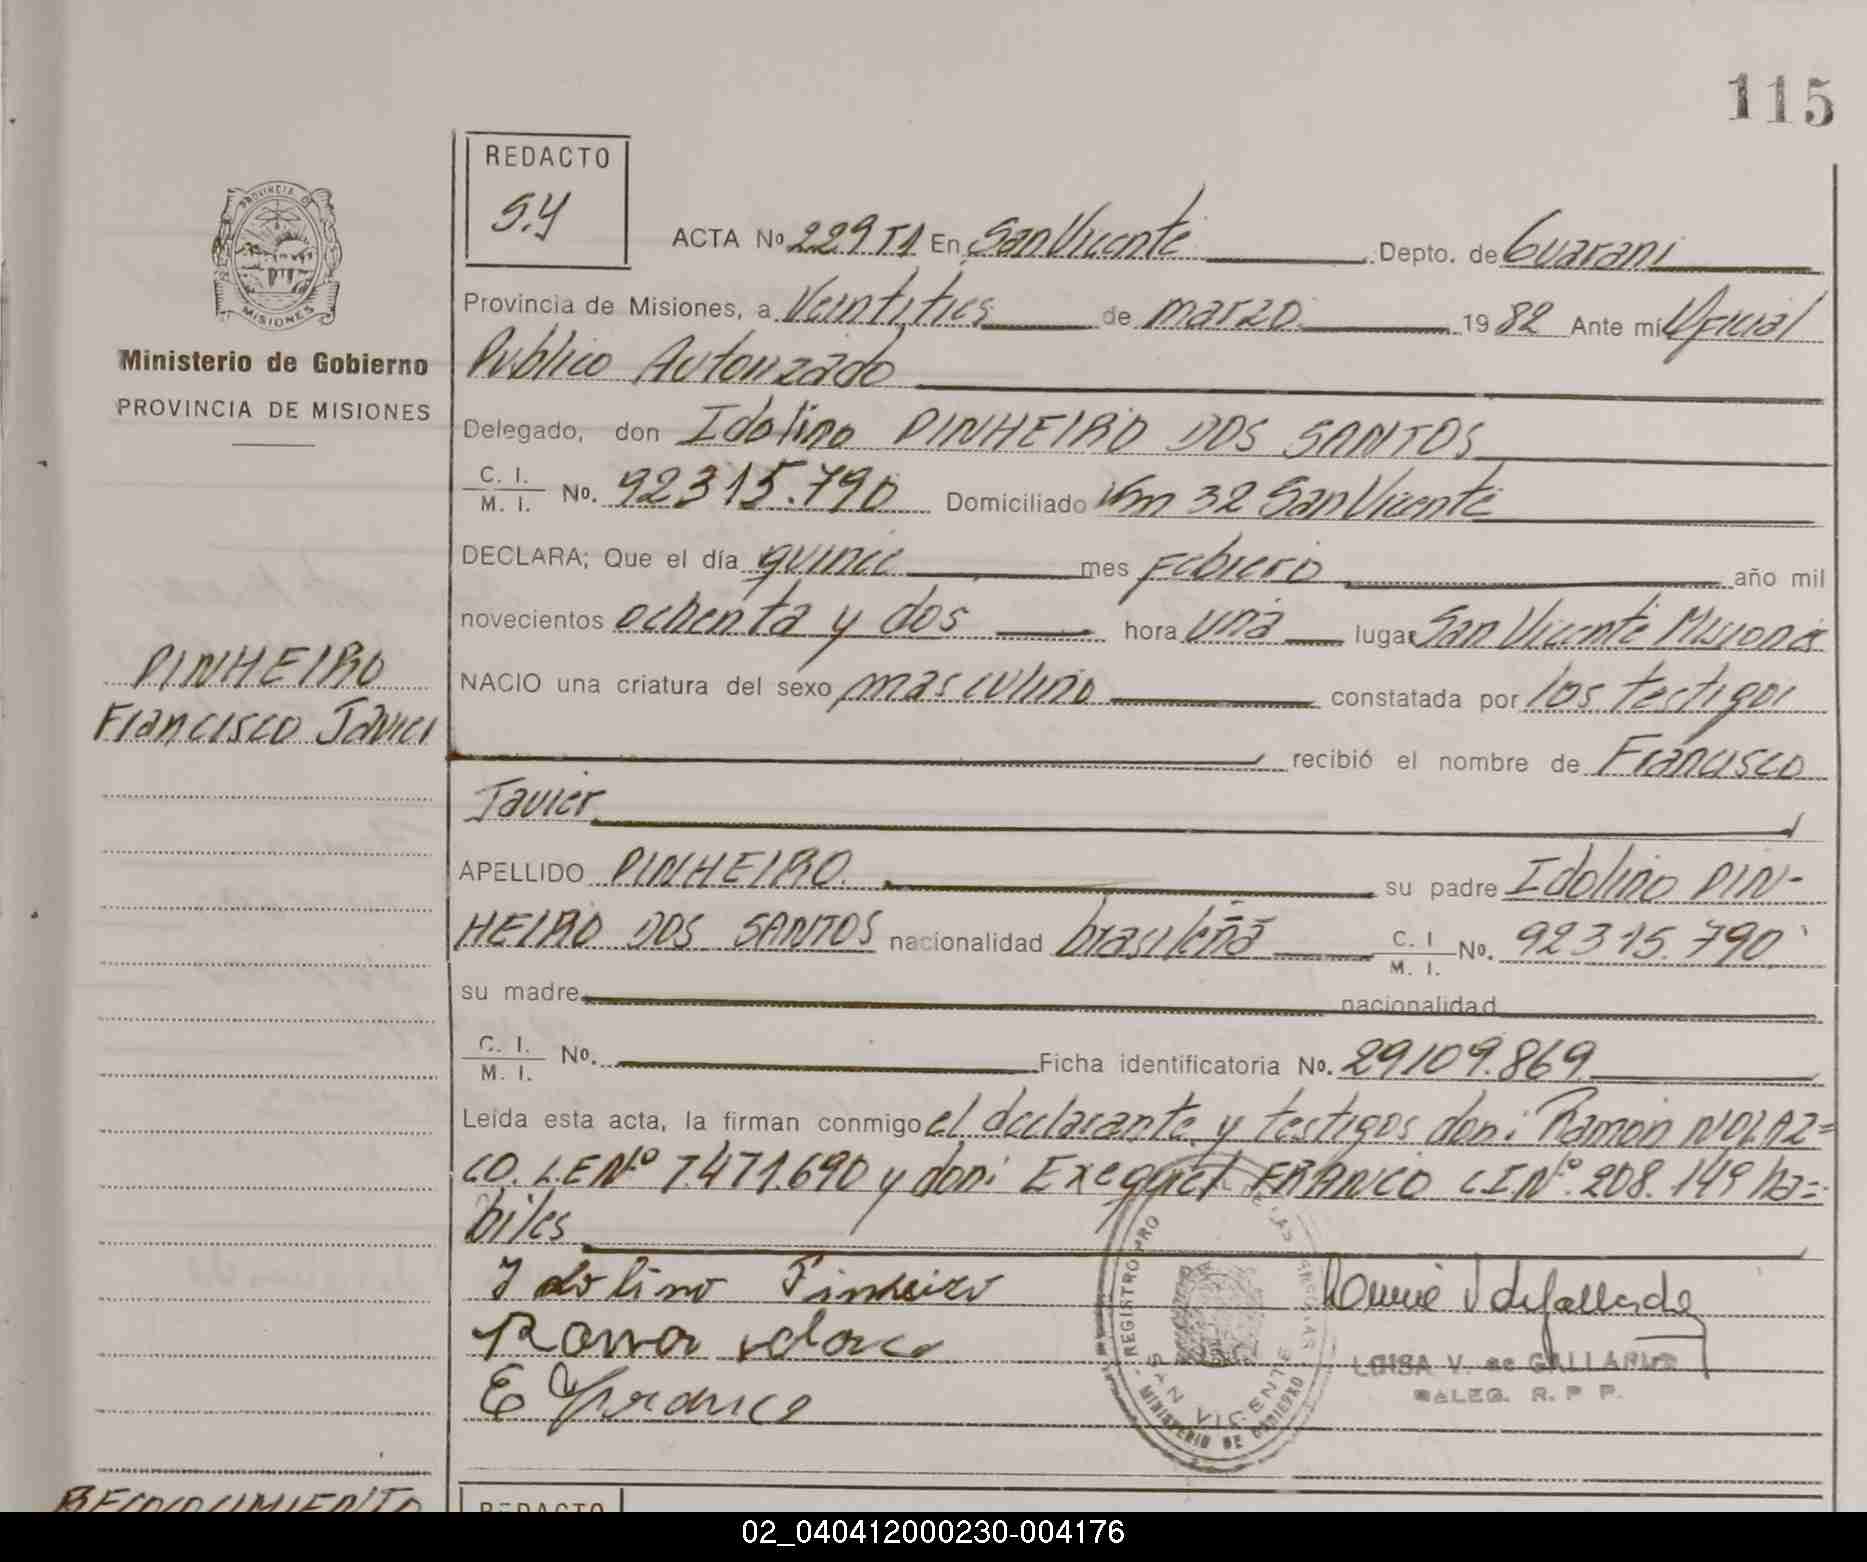 115
REDACTO
S.Y
PROVINCIA DE
MISIONES
Ministerio de Gobierno
PROVINCIA DE MISIONES
ACTA No 229 T1 En San Vicente Depto. de Guarani
Provincia de Misiones, a Veintitres de marzo 19 82 Ante mí Oficial
Publico Autorizado
Delegado, don Idolino PINHEIRO DOS SANTOS
C. I.
M. I. No. 92315.790 Domiciliado Km 32 San Vicente
DECLARA; Que el día quince mes Febrero año mil
novecientos ochenta y dos hora una lugar San Vicente Misiones
PINHEIRO
Francisco Javier
NACIO una criatura del sexo masculino constatada por los testigos
recibió el nombre de Francisco
Javier
APELLIDO PINHEIRO. su padre Idolino PIN-
HEIRO DOS SANTOS nacionalidad brasileña C. I M. I. No. 92315.790
su madre nacionalidad
C. I.
M. I. No. Ficha identificatoria No. 29109.869
Leída esta acta, la firman conmigo el declarante y testigos don: Ramon NOLAZ=
CO. L.E Nº 7.471.690 y don: Exequiel FRANCO C I Nº. 208.149 ha=
biles
Idolino Pinheiro
E Franco
REGISTRO PRO DE LAS PERSONAS
SAN VICENTE
MINISTERIO DE GOBIERNO
LUISA V. de GALLARDO
DALEG. R. P P.
RECONOCIMIENTO
REDACTO
02_040412000230-004176